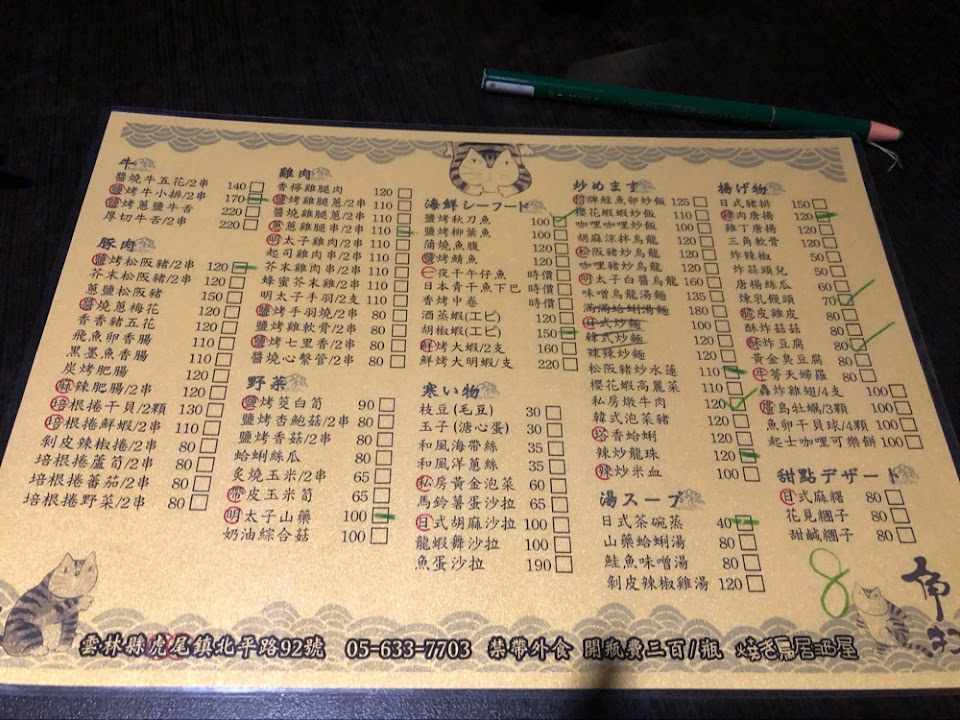 牛
醬燒牛五花/2串 140
鹽烤牛小排/2串 170
鹽烤蔥鹽牛舌 220
厚切牛舌/2串 220
豚肉
鹽烤松阪豬/2串 120
芥末松阪豬/2串 120
蔥鹽松阪豬 150
醬燒蔥梅花 120
香香豬五花 120
飛魚卵香腸 110
黑墨魚香腸 110
炭烤肥腸 120
麻辣肥腸/2串 120
培根捲干貝/2顆 130
培根捲鮮蝦/2串 110
剝皮辣椒捲/2串 80
培根捲蘆筍/2串 80
培根捲蕃茄/2串 80
培根捲野菜/2串 80
雞肉
香檸雞腿肉 120
鹽烤雞腿蔥/2串 110
醬燒雞腿蔥/2串 110
蔥雞腿串/2串 110
明太子雞肉/2串 110
起司雞肉串/2串 110
芥末雞肉串/2串 110
蜂蜜芥末雞/2串 110
明太子手羽/2支 110
鹽烤手羽燒/2串 80
鹽烤雞軟骨/2串 80
鹽烤七里香/2串 80
醬燒心繫管/2串 80
野菜
鹽烤茭白筍 90
鹽烤杏鮑菇/2串 80
鹽烤香菇/2串 80
蛤蜊絲瓜 80
炙燒玉米/2串 65
帶皮玉米筍 65
明太子山藥 100
奶油綜合菇 100
海鮮シーフード
鹽烤秋刀魚 100
鹽烤柳葉魚 100
蒲燒魚腹 120
鹽烤鯖魚 120
一夜干午仔魚 時價
日本青干魚下巴 時價
香烤中卷 時價
酒蒸蝦(エビ) 120
胡椒蝦(エビ) 150
鮮烤大蝦/2支 160
鮮烤大明蝦/支 220
寒い物
枝豆(毛豆) 30
玉子(溏心蛋) 30
和風海帶絲 35
和風洋蔥絲 35
私房黃金泡菜 60
馬鈴薯蛋沙拉 65
日式胡麻沙拉 100
龍蝦舞沙拉 100
魚蛋沙拉 190
炒めます
招牌鮭魚卵炒飯 125
櫻花蝦蝦炒飯 110
咖哩咖哩炒飯 100
胡麻涼拌烏龍 120
松阪豬炒烏龍 120
咖哩豬炒烏龍 120
明太子白醬烏龍 160
味噌烏龍湯麵 135
滿滿蛤蜊湯麵 180
日式炒麵
韓式炒麵
辣辣炒麵 120
松阪豬炒水蓮 110
櫻花蝦高麗菜 110
私房燉牛肉 120
韓式泡菜豬 120
塔香蛤蜊 120
辣炒龍珠 120
辣炒米血 100
湯スープ
日式茶碗蒸 40
山藥蛤蜊湯 80
鮭魚味噌湯 80
剝皮辣椒雞湯 120
揚げ物
日式豬排 150
雞肉唐揚 120
雞丁唐揚 120
三角軟骨 120
炸辣椒 50
炸蒜頭兒 50
唐楊絲瓜 60
煉乳饅頭 70
脆皮雞皮 80
酥炸菇菇 80
酥炸豆腐 80
黃金臭豆腐 80
牛芳天婦羅 80
轟炸雞翅/4支 100
廣島牡蠣/3顆 100
魚卵干貝球/4顆 100
起士咖哩可樂餅 100
甜點デザート
日式麻糬 80
花見糰子 80
甜鹹糰子 80
8
雲林縣虎尾鎮北平路92號 05-633-7703 禁帶外食 開瓶費三百/瓶 燒き鳥居酒屋